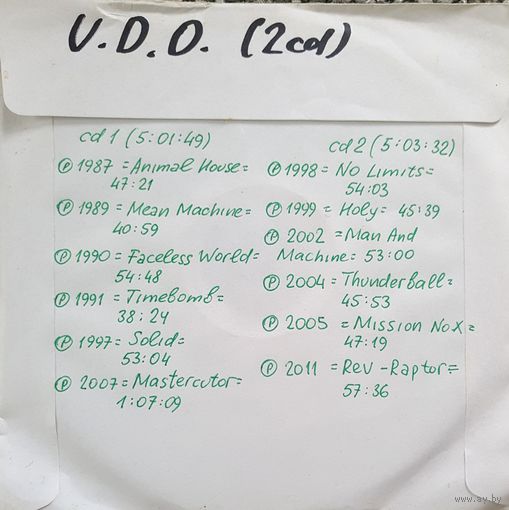 U.D.O. (2cd)
cd1 (5:01:49)
℗ 1987 = Animal House =
47:21
℗ 1989 = Mean Machine =
40:59
℗ 1990 = Faceless World =
54:48
℗ 1991 = Timebomb =
38:24
℗ 1997 = Solid =
53:04
℗ 2007 = Mastercutor =
1:07:09
cd2 (5:03:32)
℗ 1998 = No Limits =
54:03
℗ 1999 = Holy = 45:39
℗ 2002 = Man And
Machine = 53:00
℗ 2004 = Thunderball =
45:53
℗ 2005 = Mission No X =
47:19
℗ 2011 = Rev-Raptor =
57:36
www.ay.by